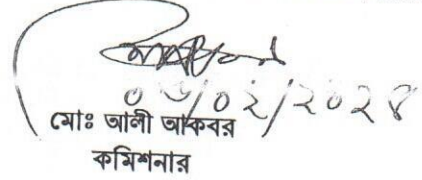 ০৬/০২/২০২৪
মোঃ আলী আকবর
কমিশনার